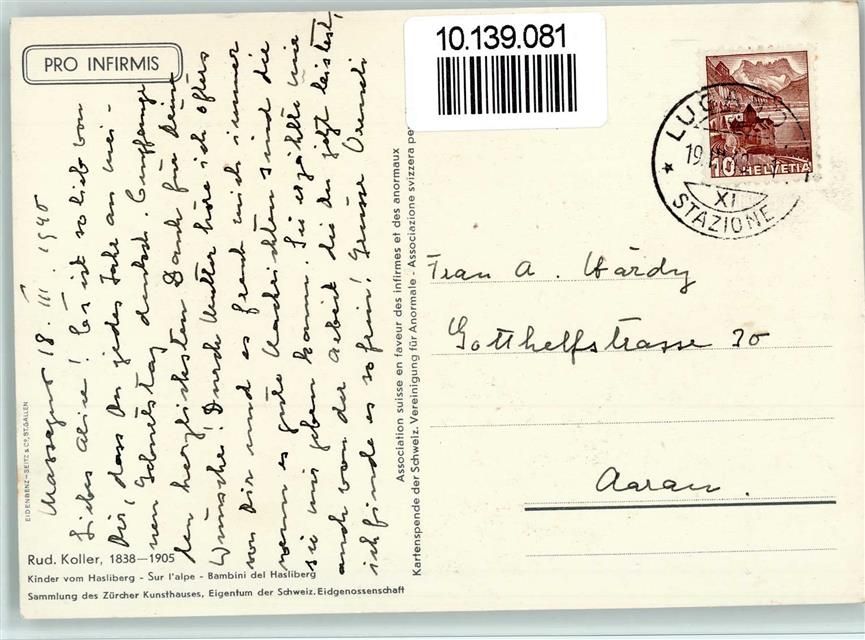 PRO INFIRMIS
10.139.081
LUGANO
19.
XI
STAZIONE
10 HELVETIA
Massagno 18. III. 1940
Liebes Alice! Es ist so lieb von
Dir, dass Du jedes Jahr an mei-
nen Geburtstag denkst. Empfange
den herzlichsten Dank für deine
Wünsche! Durch Mutter höre ich öfters
von Dir und es freut mich immer
wenn es gute Nachrichten sind die
sie mir geben kann. Sie erzählte mir
auch von der Arbeit die du jetzt leistest,
ich finde es so fein! Grüsse
Frau A. Härdy
Gotthelfstrasse 30
Aarau.
Association suisse en faveur des infirmes et des anormaux
Kartenspende der Schweiz. Vereinigung für Anormale - Associazione svizzera pe
EIDENBENZ-SEITZ & Co, ST. GALLEN
Rud. Koller, 1838—1905
Kinder vom Hasliberg - Sur l'alpe - Bambini del Hasliberg
Sammlung des Zürcher Kunsthauses, Eigentum der Schweiz. Eidgenossenschaft